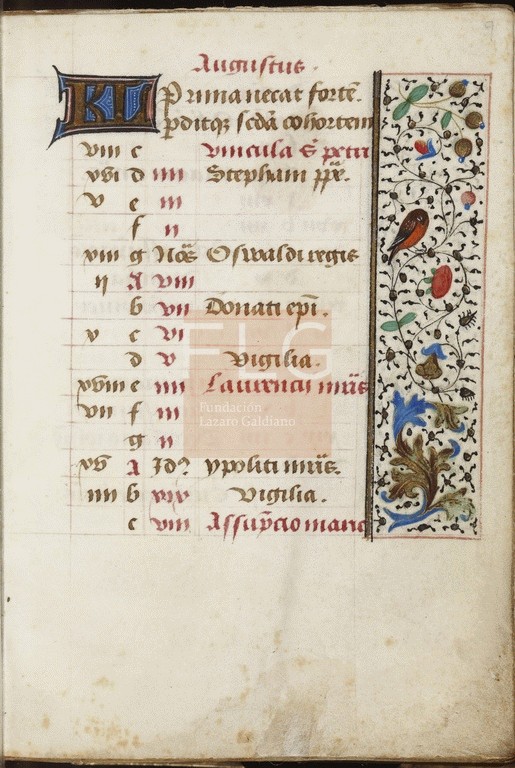 9
Augustus.
KL Prima necat fortē.
pditq; scdā cohortem
viii c Vincula S petri
xvi d iiii Stephani pp̄e.
v e iii
f ii
xiii g Noˉs Oswaldi regis
ii A viii
b vii Donati epī.
x c vi
d v Vigilia.
xviii e iiii Laurencii mr̄is
vii f iii
g ii
xv A Idꝰ ypoliti mr̄is.
iiii b xix Vigilia.
c xviii Assūpcio marie
FLG
Fundación
Lázaro Galdiano